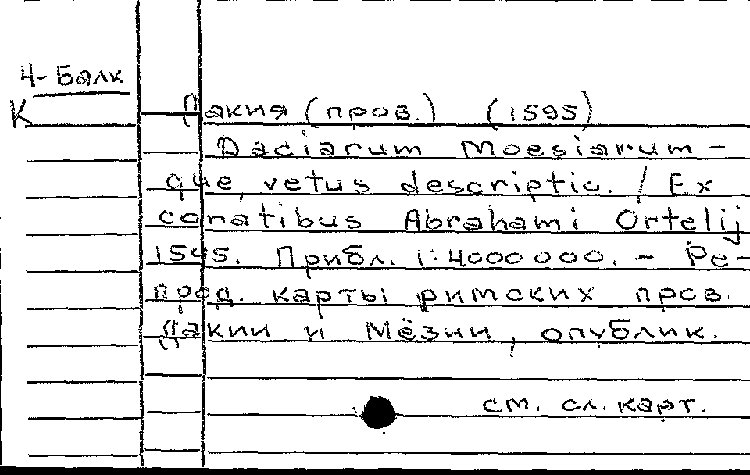 4-Балк
К
Дакия (пров.) (1595)
Daciarum Moesiarum-
que, vetus descriptio. / Ex
conatibus Abrahami Ortelij
1595. Прибл. 1:4000000. - Ре-
прод. карты римских пров.
Дакии и Мёзии, опублик.
см. сл. карт.